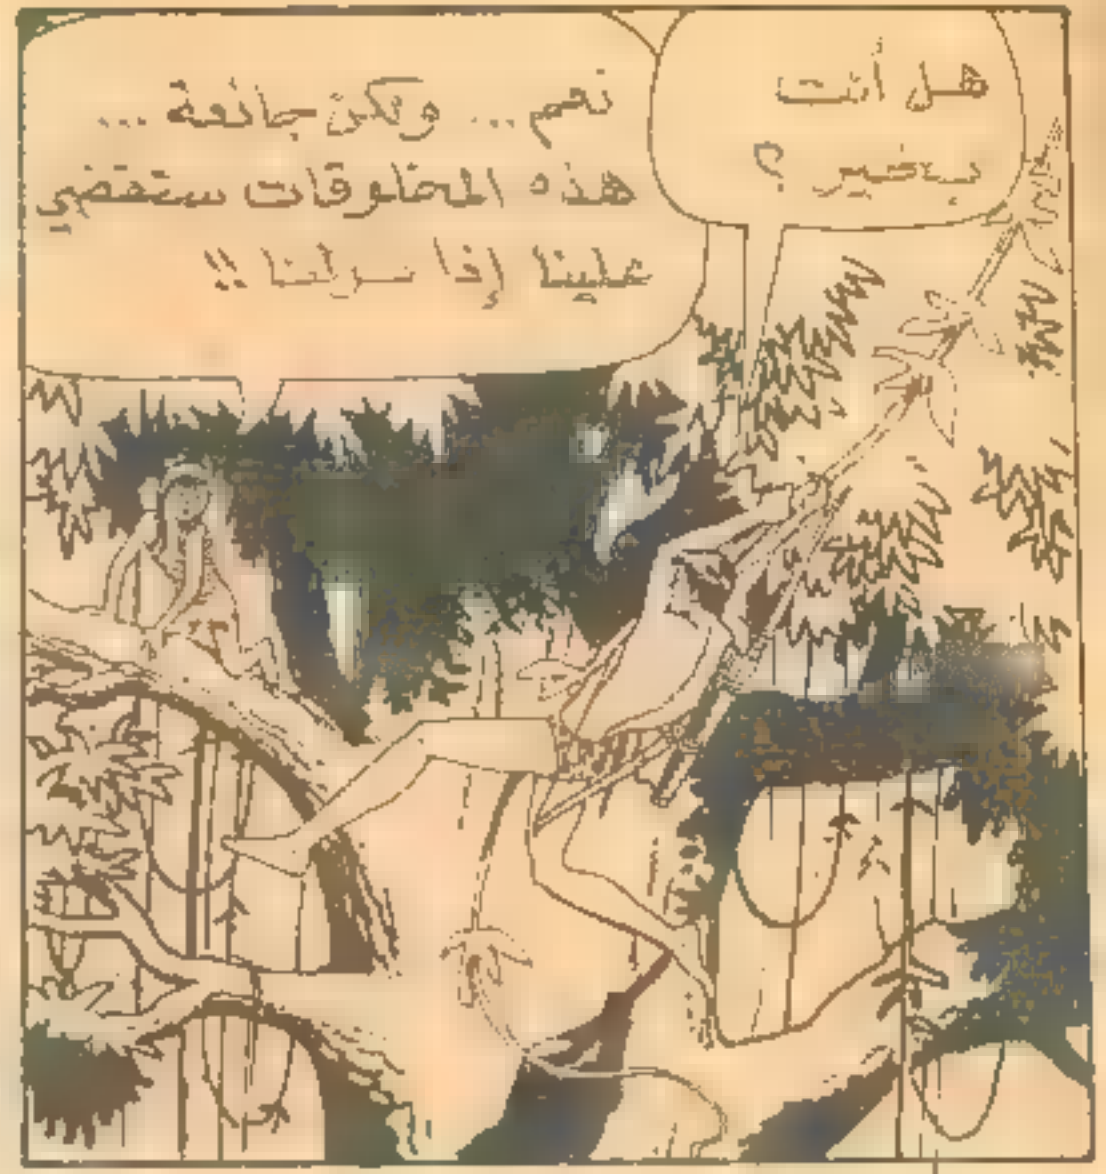 هل أنت
بخير ؟
نعم ... ولكن جائعة ...
هذه المخلوقات ستقضي
علينا إذا نزلنا !!